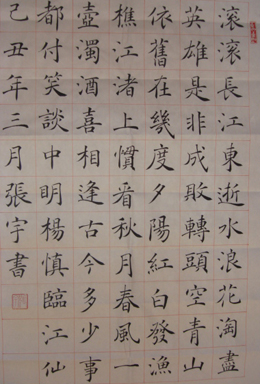 滾滾長江東逝水浪花淘盡
英雄是非成敗轉頭空青山
依舊在幾度夕陽紅白發漁
樵江渚上慣看秋月春風一
壺濁酒喜相逢古今多少事
都付笑談中明楊慎臨江仙
己丑年三月張宇書